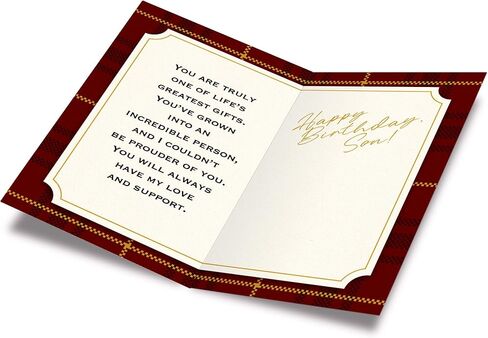 You are truly
one of life's
greatest gifts.
You've grown
into an
incredible person,
and I couldn't
be prouder of you.
You will always
have my love
and support.
Happy
Birthday,
Son!